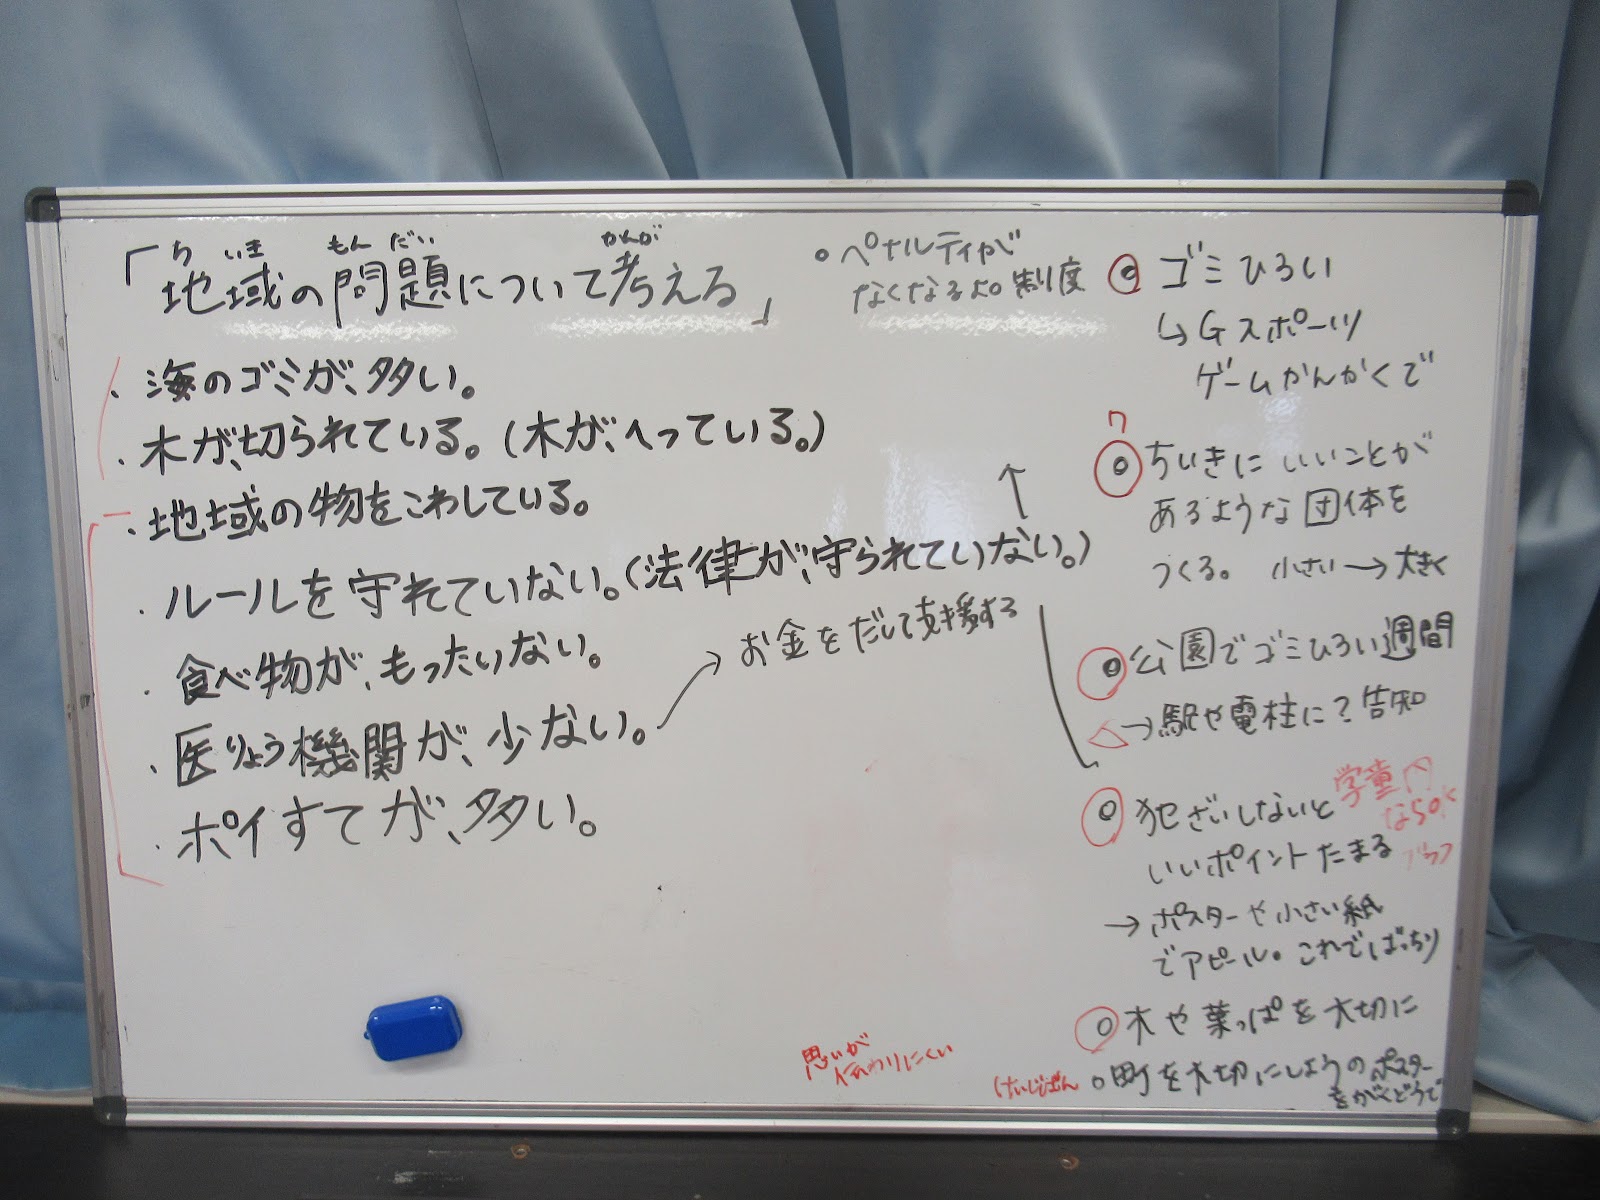 「地域の問題について考える」
ち いき もん だい かんが
・海のゴミが、多い。
・木が、切られている。(木が、へっている。)
・地域の物をこわしている。
・ルールを守れていない。(法律が、守られていない。)
・食べ物が、もったいない。
・医りょう機関が、少ない。
→お金をだして支援する
・ポイすてが、多い。
○ペナルティが
なくなるよ。制度
ゴミひろい
↳Gスポーツ
ゲームかんかくで
ちいきにいいことが
あるような団体を
つくる。 小さい→大きく
公園でゴミひろい週間
△→駅や電柱に?告知
犯ざいしないと
いいポイントたまる
学童内
なら
→ポスターや小さい紙
でアピール。これでばっちり
○木や葉っぱを大切に
○町を大切にしようのポスター
をがくどうで
けいじばん
思いが
伝わりにくい